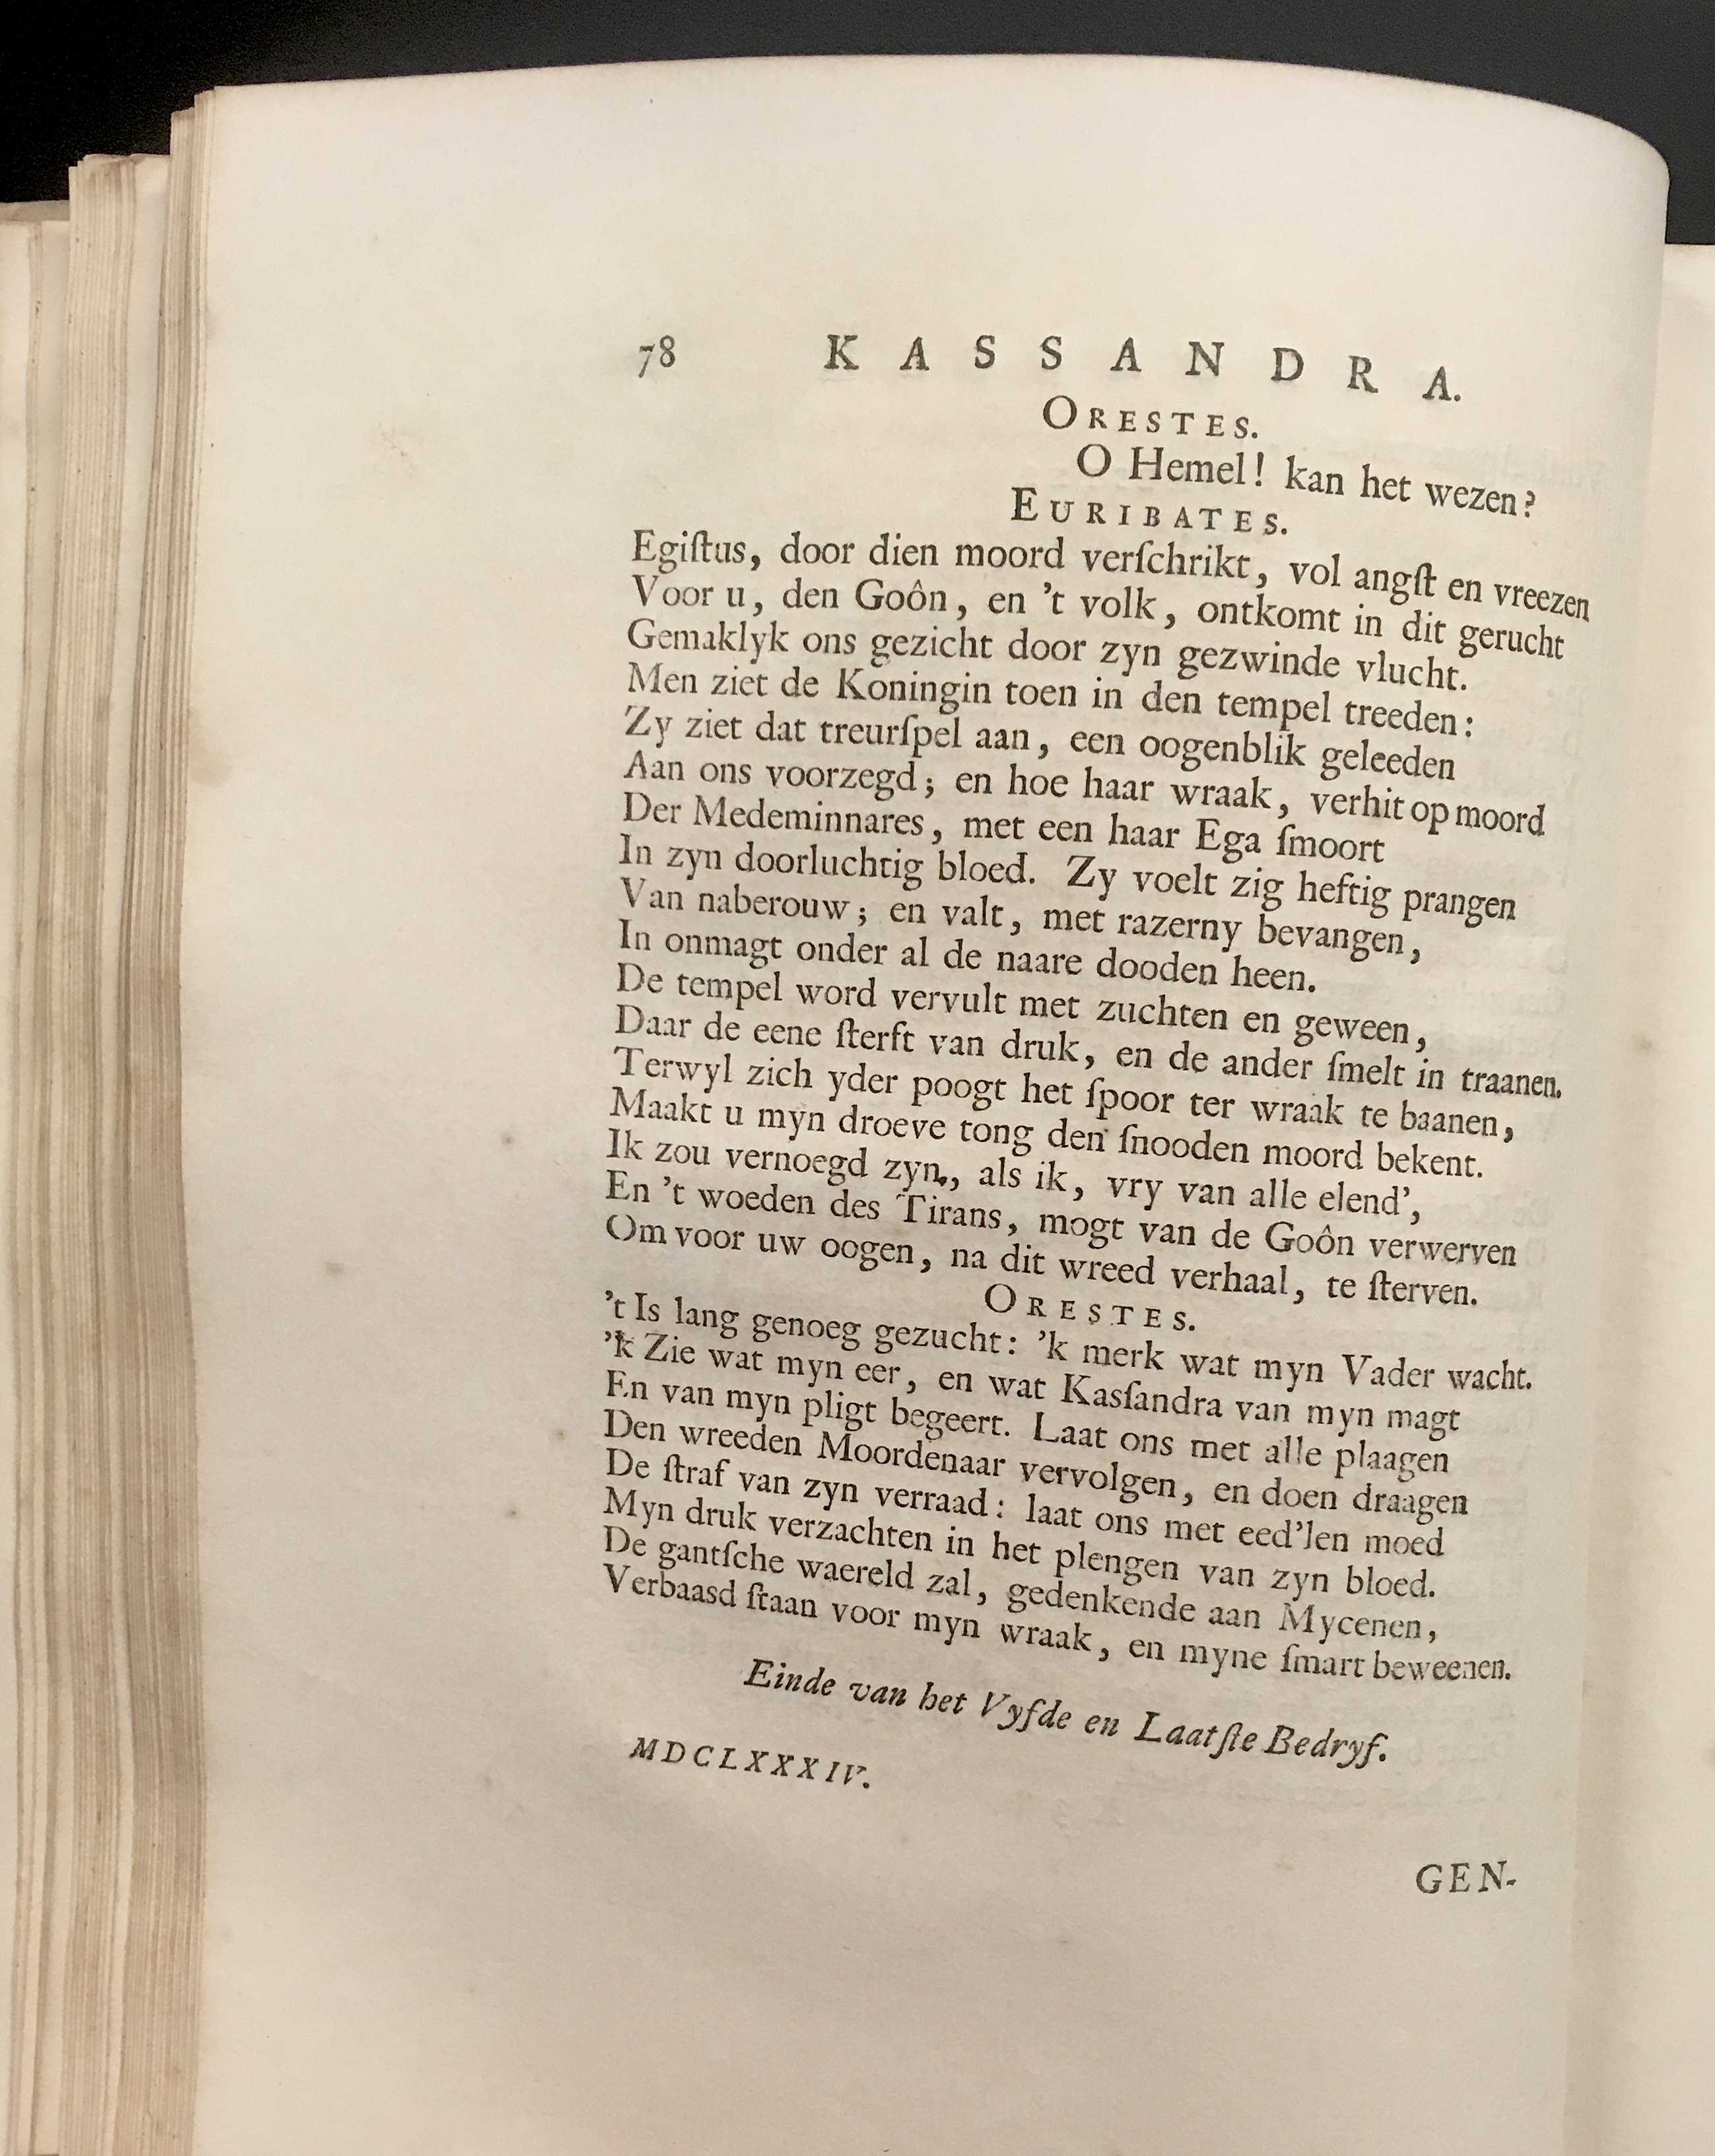 78 KASSANDRA.
ORESTES.
O Hemel! kan het wezen?
EURIBATES.
Egiſtus, door dien moord verſchrikt, vol angſt en vreezen
Voor u, den Goôn, en 't volk, ontkomt in dit gerucht
Gemaklyk ons gezicht door zyn gezwinde vlucht.
Men ziet de Koningin toen in den tempel treeden:
Zy ziet dat treurſpel aan, een oogenblik geleeden
Aan ons voorzegd; en hoe haar wraak, verhit op moord
Der Medeminnares, met een haar Ega ſmoort
In zyn doorluchtig bloed. Zy voelt zig heftig prangen
Van naberouw; en valt, met razerny bevangen,
In onmagt onder al de naare dooden heen.
De tempel word vervult met zuchten en geween,
Daar de eene ſterft van druk, en de ander ſmelt in traanen.
Terwyl zich yder poogt het ſpoor ter wraak te baanen,
Maakt u myn droeve tong den ſnooden moord bekent.
Ik zou vernoegd zyn, als ik, vry van alle elend',
En 't woeden des Tirans, mogt van de Goôn verwerven
Om voor uw oogen, na dit wreed verhaal, te ſterven.
ORESTES.
't Is lang genoeg gezucht: 'k merk wat myn Vader wacht.
'k Zie wat myn eer, en wat Kasſandra van myn magt
En van myn pligt begeert. Laat ons met alle plaagen
Den wreeden Moordenaar vervolgen, en doen draagen
De ſtraf van zyn verraad: laat ons met eed'len moed
Myn druk verzachten in het plengen van zyn bloed.
De gantſche waereld zal, gedenkende aan Mycenen,
Verbaasd ſtaan voor myn wraak, en myne ſmart beweenen.
Einde van het Vyfde en Laatſte Bedryf.
MDCLXXXIV.
GEN-